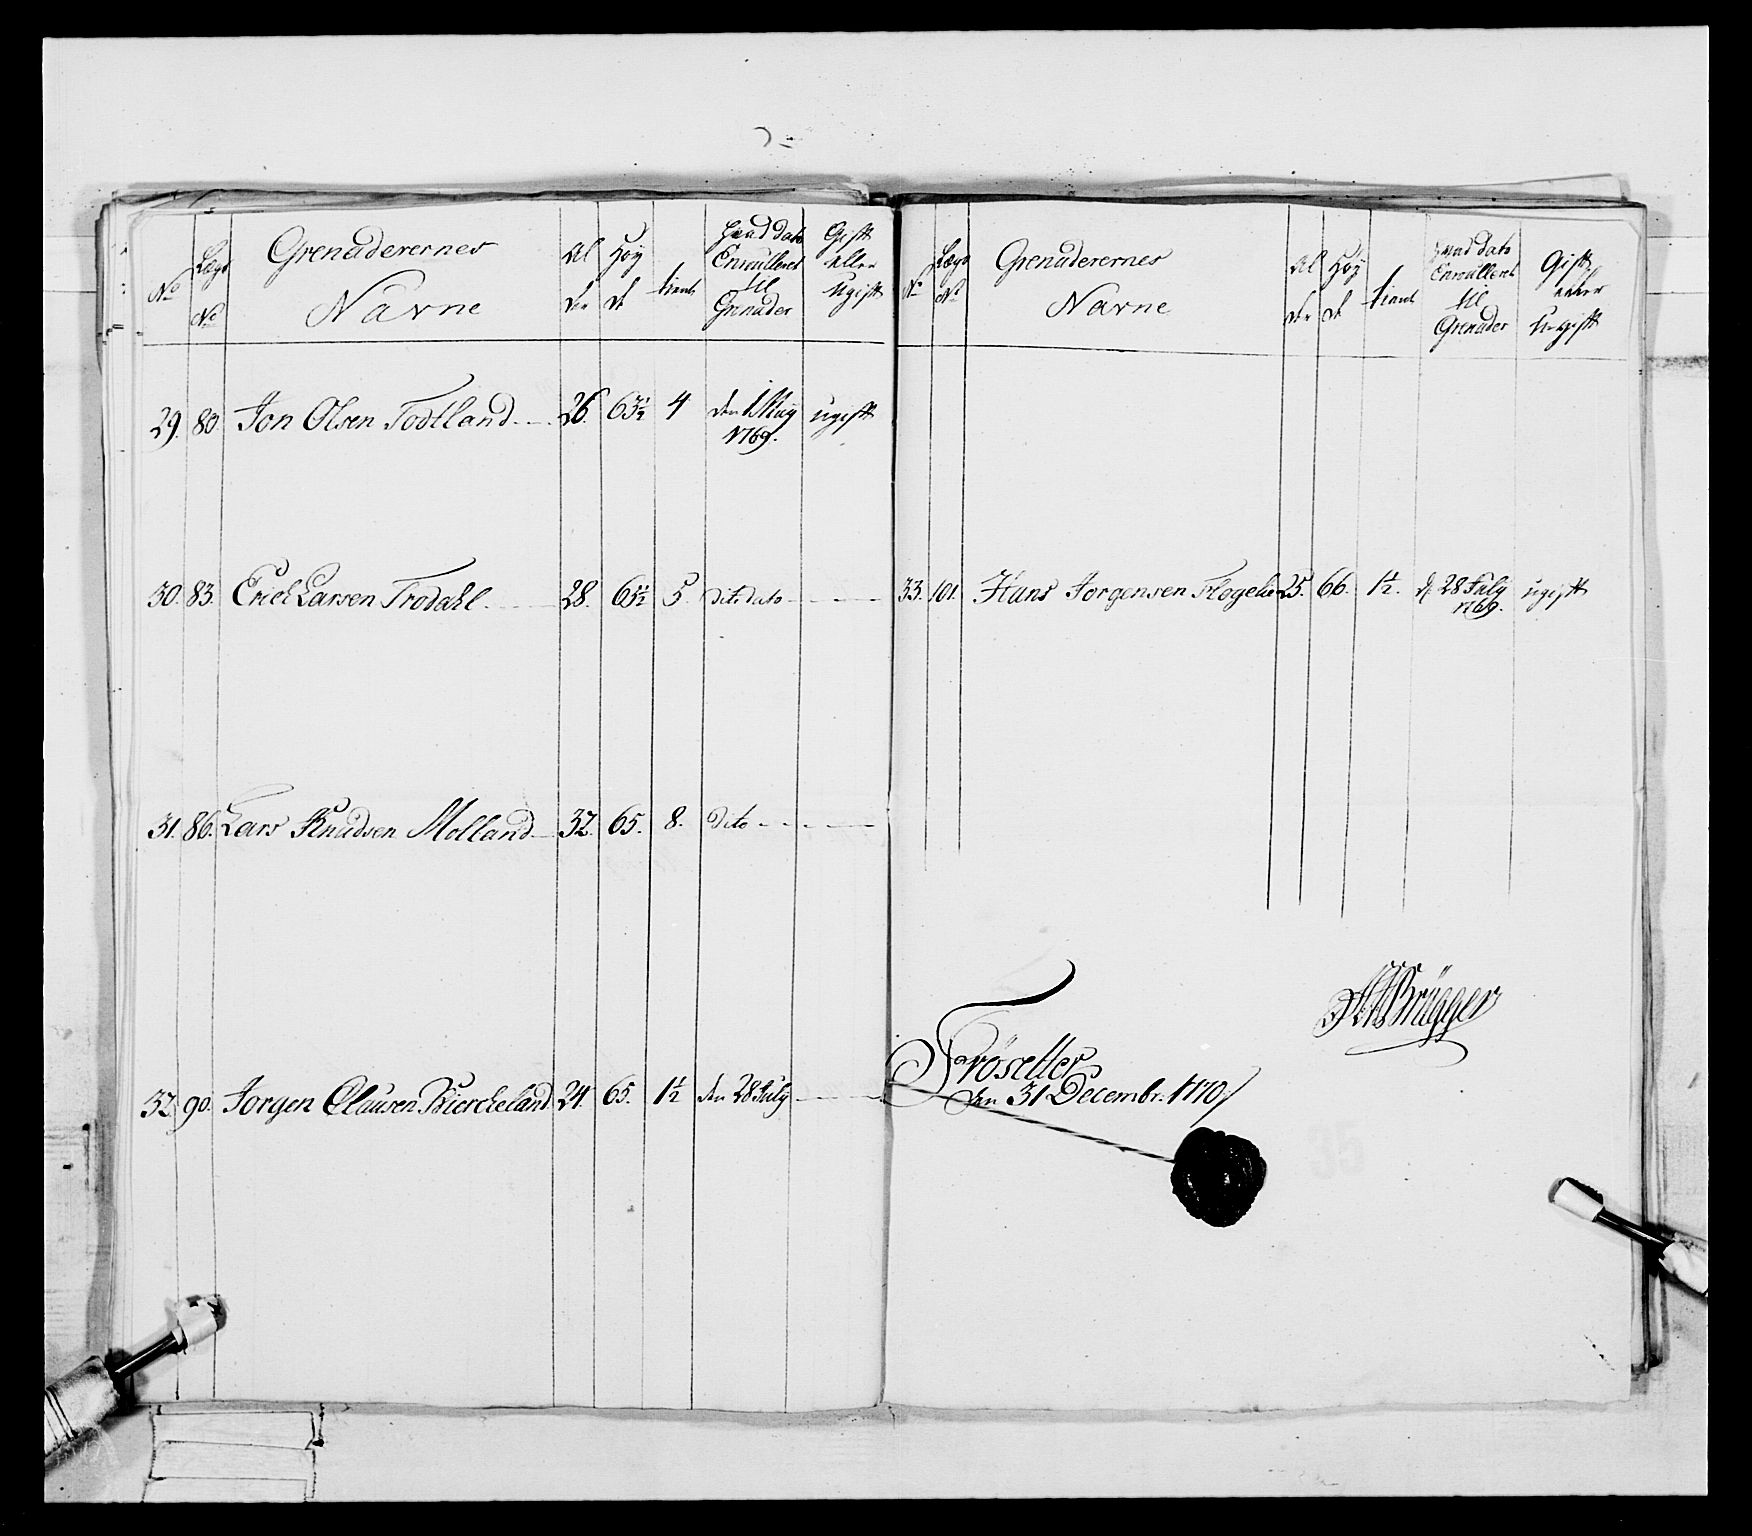 No
Lægs
No
Grenaderernes
Navne
Al
der
Høy
de
tient
Hvad dato
Enroulleret
til
Grenader
Gift
eller
Ugift
29. 80. Jon Olsen Todtland 26. 63½ 4 den 1 May ugift
1769.
30. 83. Erich Larsen Trodahl 28. 65½ 5. dito dato
31. 86. Lars Knudsen Molland 32. 65. 8. dito
32. 90. Jorgen Clausen Bierckeland 24. 65. 1½ den 28 July
No
Lægs
No
Grenaderernes
Navne
Al
der
Høy
de
tient
hvad dato
Enroulleret
til
Grenader
Gift
eller
U-gift
33. 101. Hans Jorgensen Flogelie 25. 66. 1½. d. 28 July ugift
1769.
Brügger
Fröseller
den 31 Decembr. 1770
35